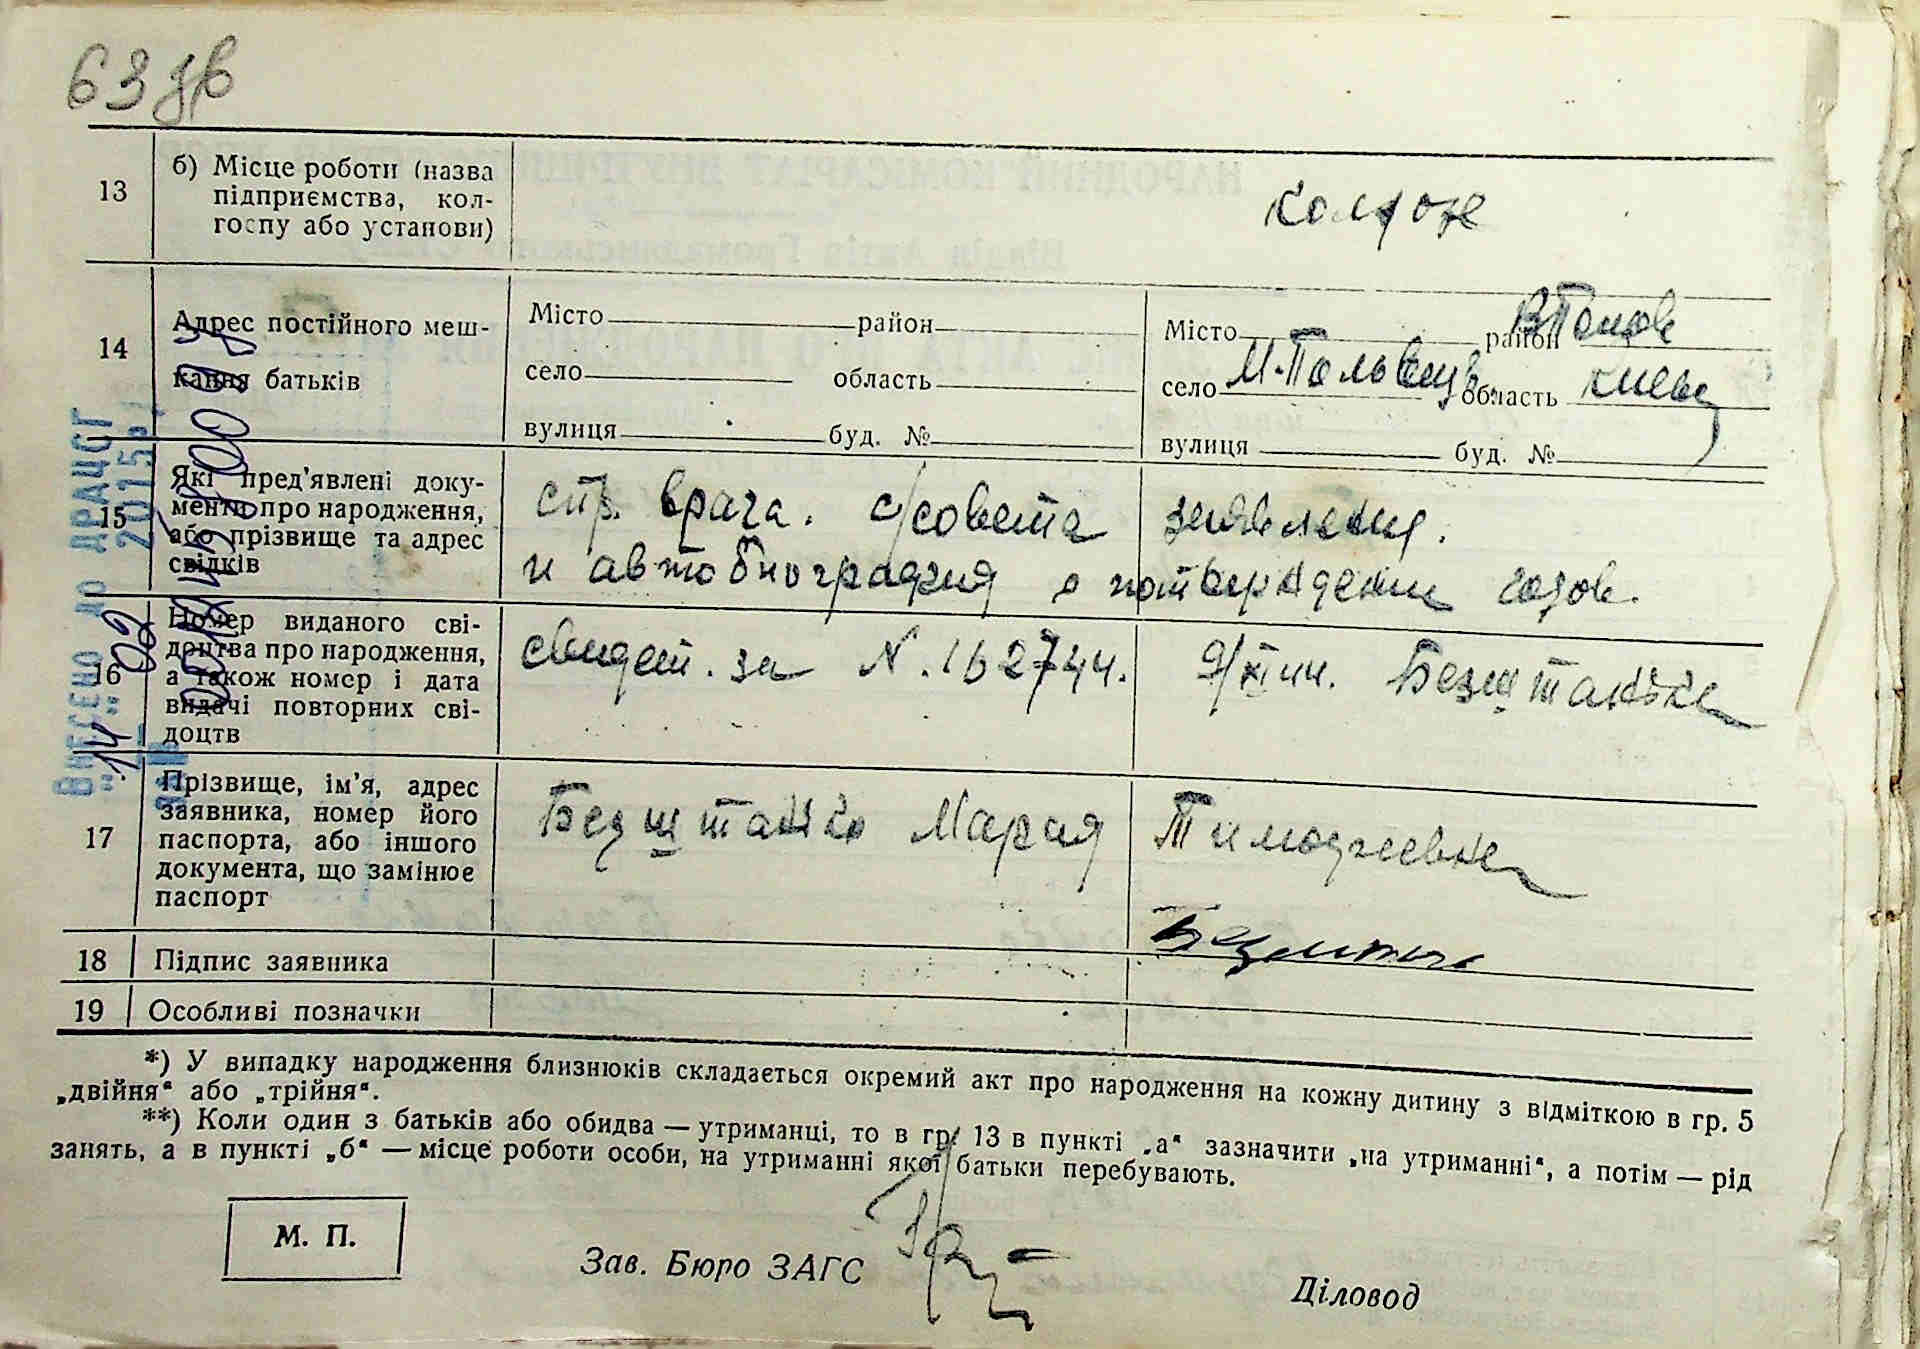 63 зв
13
б) Місце роботи (назва
підприємства, кол-
госпу або установи)
колхозе
14
Адрес постійного меш-
кання батьків
Місто район
село область
вулиця буд. №
Місто район
село М. Половец. область Киевс
вулиця буд. №
Внесено до ДРАЦСГ
14 02 2015
15
Які пред'явлені доку-
менти про народження,
або прізвище та адрес
свідків
спр. врача. с/совета заявления.
и автобиография о потверждении годов.
16
Номер виданого сві-
доцтва про народження,
а також номер і дата
видачі повторних сві-
доцтв
свидет. за N. 162744. 9/XI 44. Безштанька
17
Прізвище, ім'я, адрес
заявника, номер його
паспорта, або іншого
документа, що замінює
паспорт
Безштанько Мария Тимофеевна
18
Підпис заявника
19
Особливі позначки
*) У випадку народження близнюків складається окремий акт про народження на кожну дитину з відміткою в гр. 5
„двійня“ або „трійня“.
**) Коли один з батьків або обидва — утриманці, то в гр. 13 в пункті „а“ зазначити „на утриманні“, а потім — рід
занять, а в пункті „б“ — місце роботи особи, на утриманні якої батьки перебувають.
М. П.
Зав. Бюро ЗАГС
Діловод